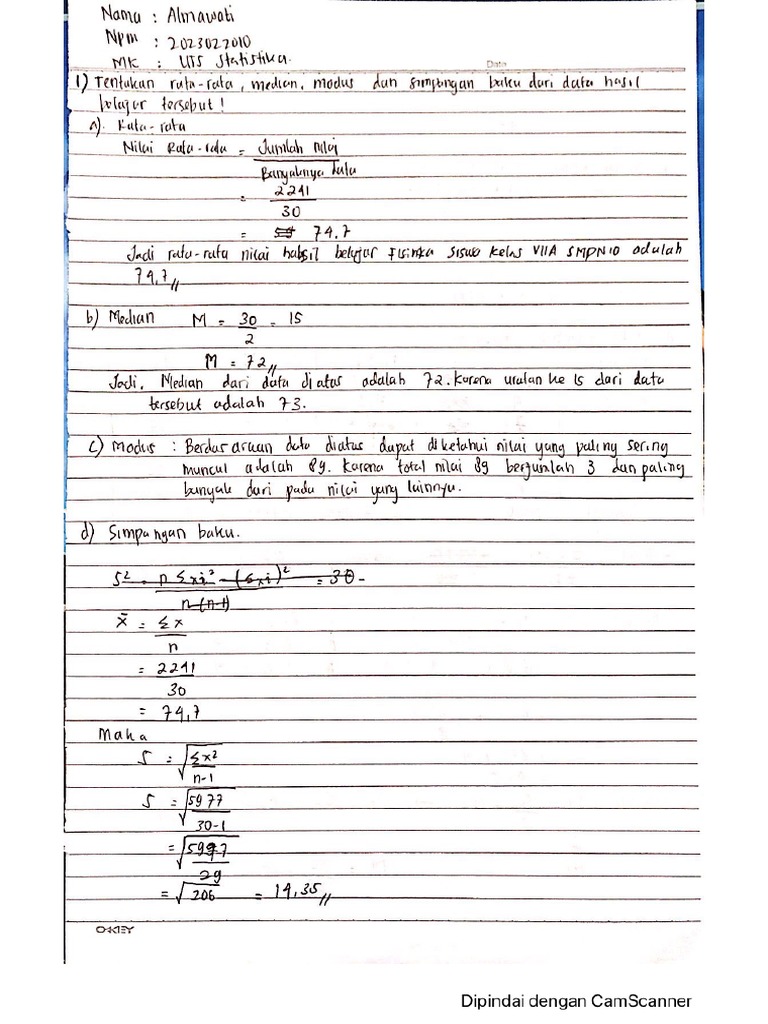 Nama : Almawati
Npm : 2023022010
MK : UTS Statistika.
Date
1) Tentukan rata-rata, median, modus dan simpangan baku dari data hasil
belajar tersebut!
a). Rata-rata
Nilai Rata-rata = Jumlah nilai
Banyaknya data
= 2241
30
= 74,7
Jadi rata-rata nilai hasil belajar Fisika siswa kelas VIIA SMPN10 adalah
74,7
b) Median M = 30 = 15
2
M = 72
Jadi, Median dari data diatas adalah 72. Karena urutan ke 15 dari data
tersebut adalah 73.
c) Modus : Berdasarkan data diatas dapat diketahui nilai yang paling sering
muncul adalah 89. Karena total nilai 89 berjumlah 3 dan paling
banyak dari pada nilai yang lainnya.
d) Simpangan baku.
S² = n Σxi² - (Σxi)² = 30 -
n (n-1)
x̄ = Σx
n
= 2241
30
= 74,7
Maka
S = √Σx²
n-1
S = √5977
30-1
= √5977
29
= √206 = 14,35
O-KEY
Dipindai dengan CamScanner